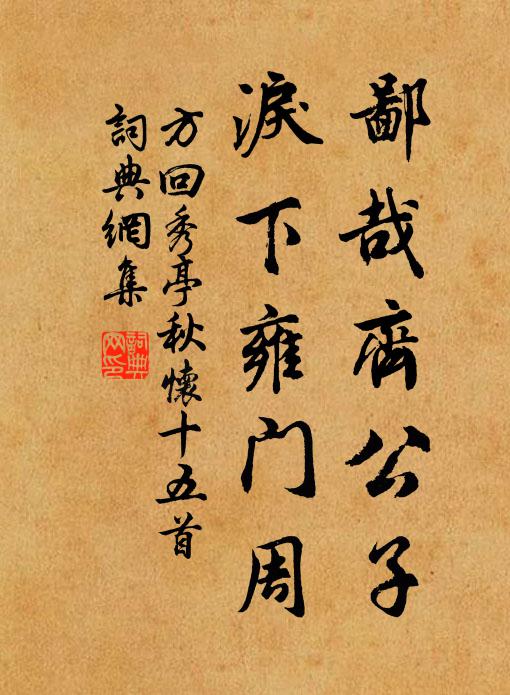 鄙哉齊公子
淚下雍門周
方回秀亭秋懷十五首
詞典網集
詞典網印